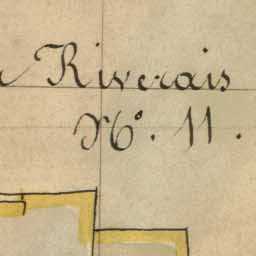 Riverais
Nº. 11.